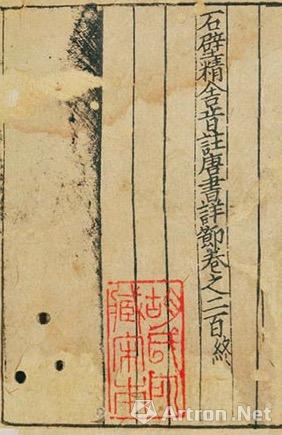 石壁精舍音註唐書詳節卷之二百終
胡氏
藏宋本
Artron.Net